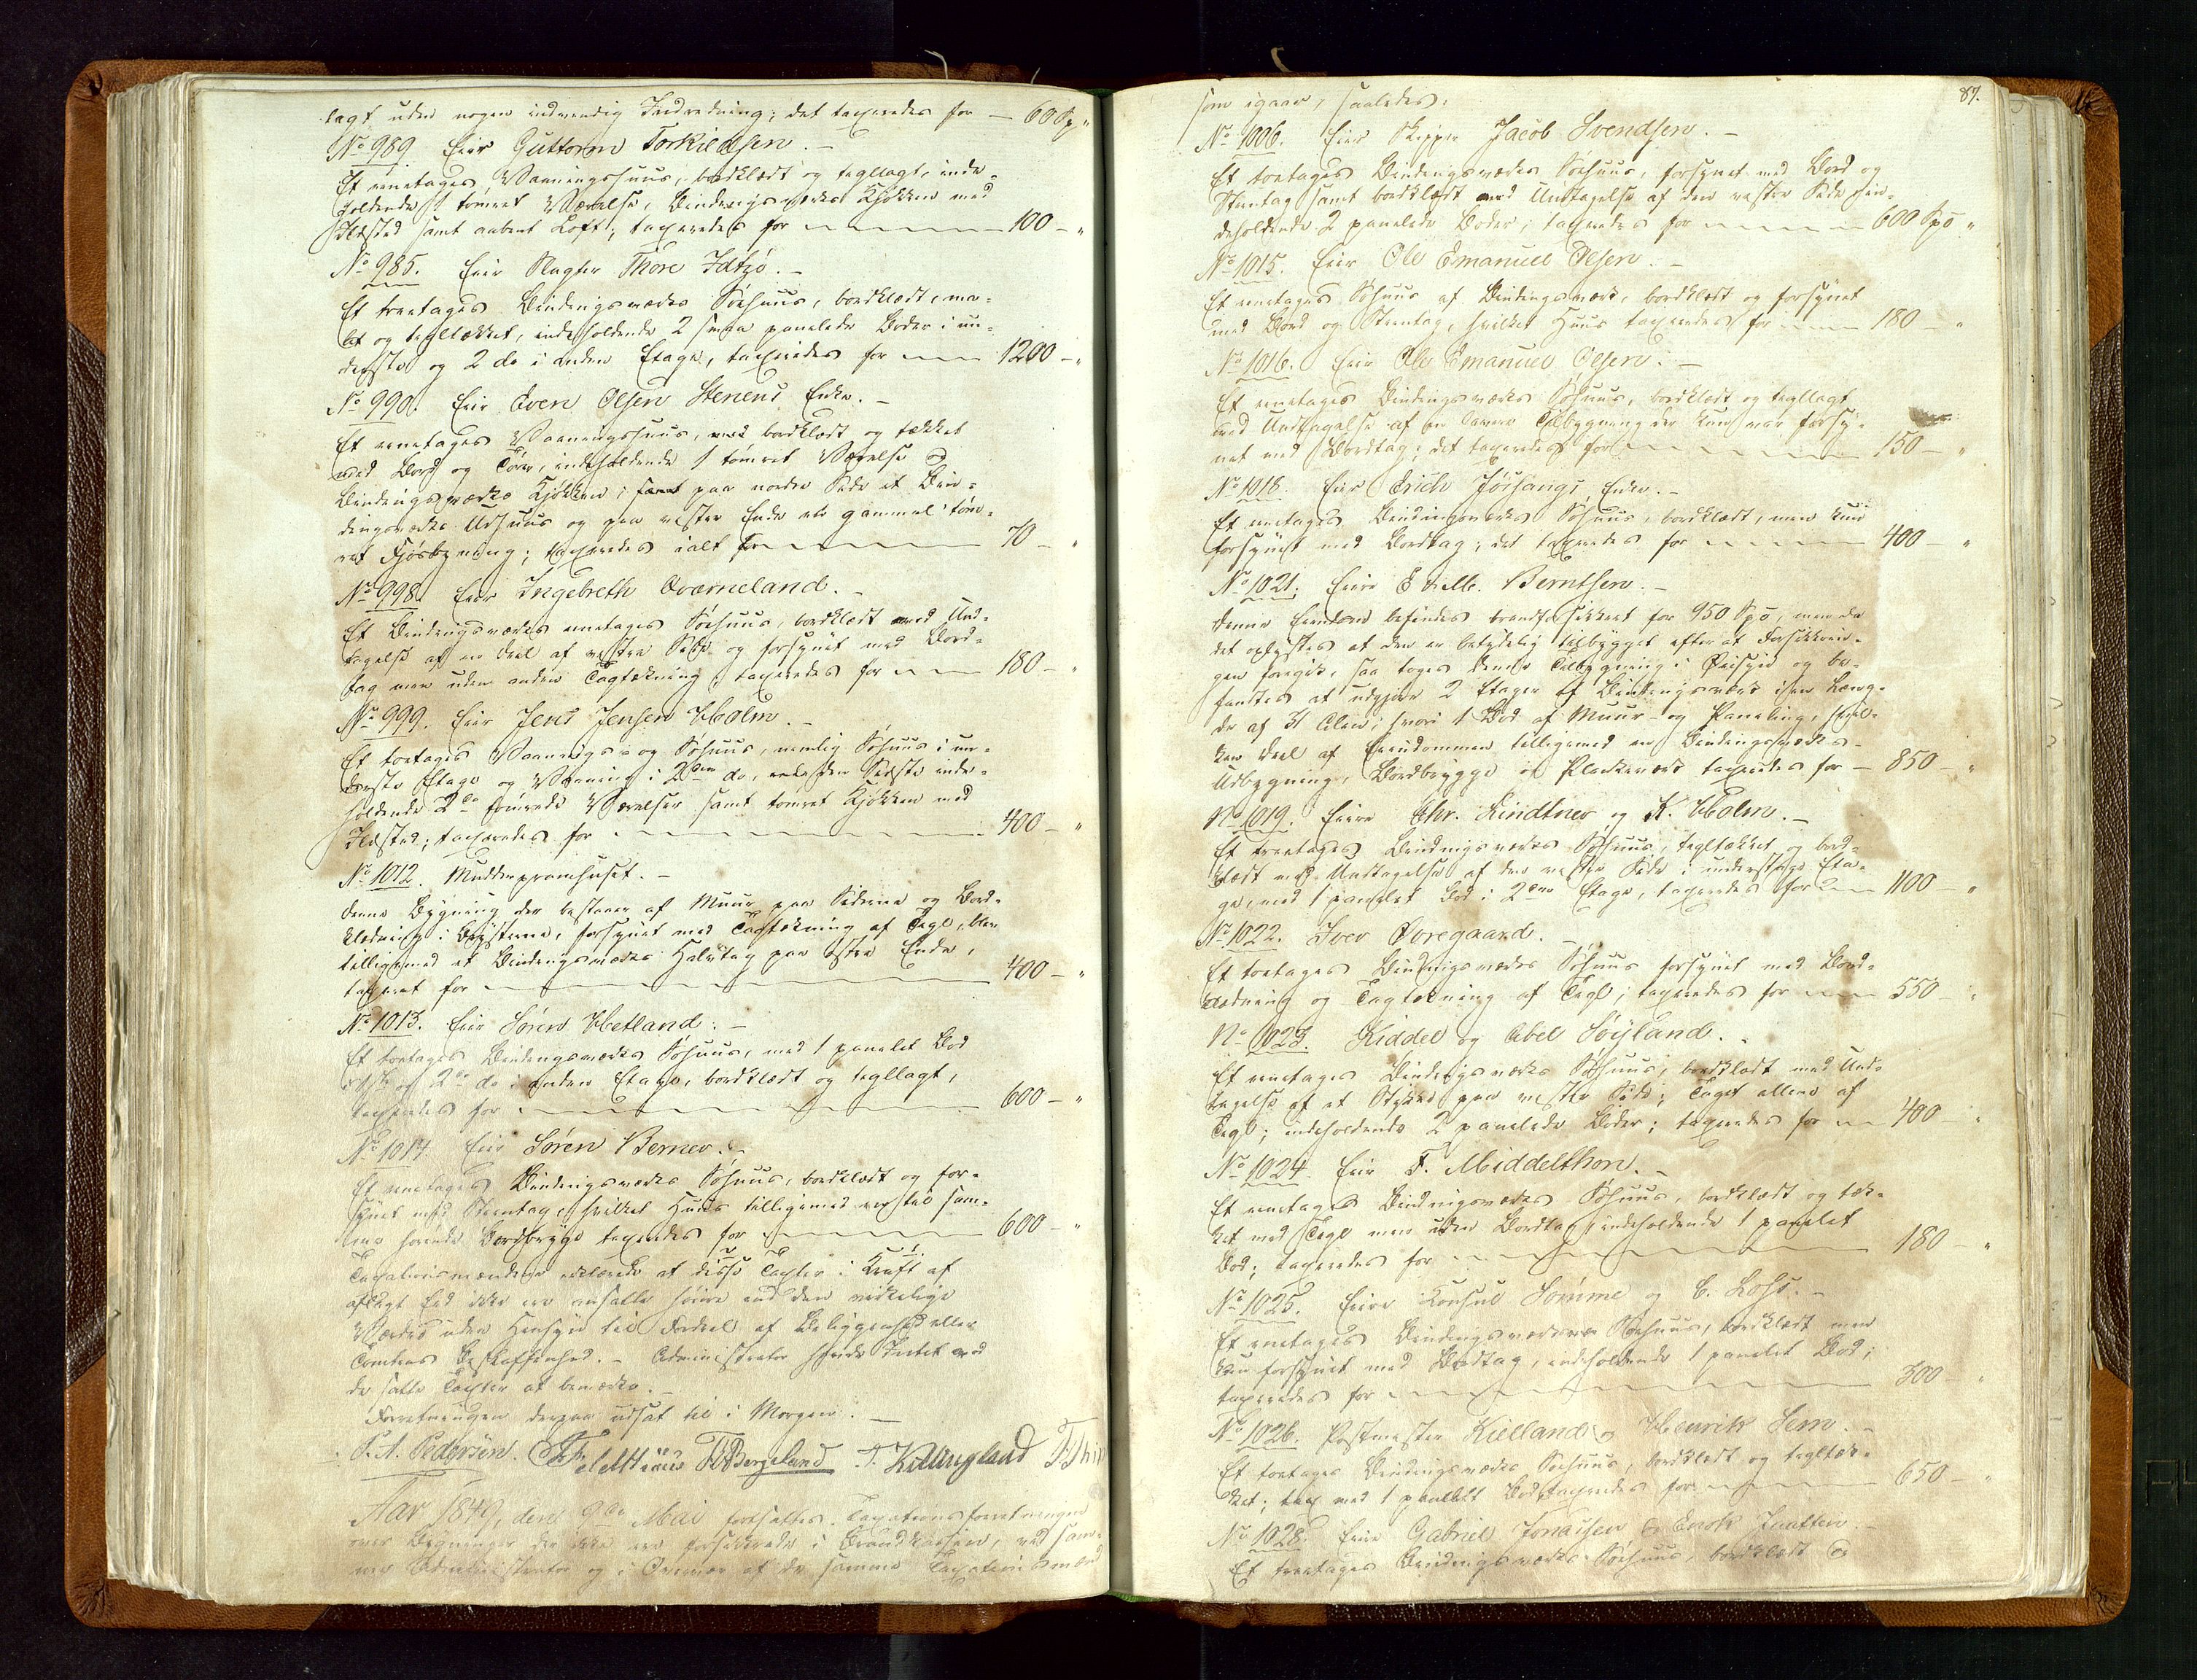 lagt uden nogen indvendig Indredning; det taxeredes for — 60 Sp „
No 989. Eier Guttorm Torkildsen. –
Et eenetages Vaaningshuus, bordklædt og tegllagt, inde-
holdende 1 tømret Værelse, Bindingsværks Kjøkken med
Ildsted samt aabent Loft; taxeredes for — 100 – „
No 985. Eier Slagter Thore Idtzø. –
Et treetages Bindingsværks Søehuus, bordklædt, ma-
let og tegltækket, indeholdende 2 smaa panelede Boder i un-
derste og 2 do i anden Etage, taxeredes for — 1200 – „
No 990. Eier Even Olsen Stenens Enke. –
Et eenetages Vaaningshuus, bordklædt og tækket
med Bord og Torv, indeholdende 1 tømret Værelse og
Bindingsværks Kjøkken; samt paa nordre Side et Bin-
dingsværks Udhuus og paa vestre Ende en gammel tøm-
ret Fjøsbygning; taxeredes ialt for — 70 – „
No 998. Eier Ingebreth Qværneland. –
Et Bindingsværks eenetages Søehuus, bordklædt med Und-
tagelse af en Deel af vestre Side og forsynet med Bord-
tag men uden anden Tagtækning, taxeredes for — 180 – „
No 999. Eier Jens Jensen Holm. –
Et toetages Vaanings- og Søhuus, nemlig Søhuus i un-
derste Etage og Vaaning i 2den do, den Sidste inde-
holdende 2de tømrede Værelser samt tømret Kjøkken med
Ildsted; taxeredes for — 400 – „
No 1012. Mudderpramhuset. –
Denne Bygning der bestaaer af Muur paa Siderne og Bord-
klædning i Røsterne, forsynet med Tagtækning af Tegl, blev
tilligemed et Bindingsværks Halvtag paa østre Ende,
taxeret for — 400 – „
No 1013. Eier Søren Hetland. –
Et toetages Bindingsværks Søhuus, med 1 panelet Bod
i 1ste og 2de do i anden Etage, bordklædt og tegllagt,
taxeredes for — 600 – „
No 1014 Eier Søren Berner. –
Et eenetages Bindingsværks Søhuus, bordklædt og for-
synet med Steentag, hvilket Huus tilligemed en til sam-
me hørende Bordbrygge taxeredes for — 600 – „
Taxationsmændene erklærede at disse Taxter i Kraft af
aflagt Eed ikke ere ansatte høiere end den virkelige
Værdie uden Hensyn til Fordeel af Beliggenhed eller
Tomtens Beskaffenhed. – Administrator havde Intet ved
de satte Taxter at bemærke. –
Forretningen derpaa udsat til i Morgen. –
P. A. Pedersen. Feldthuus T Bergeland T. Killingland
Aar 1849, den 9de Mai fortsattes Taxationsforretningen
over Bygninger der ikke ere forsikkrede i Brandkassen, ved sam-
me Administrator og i Overvær af de samme Taxationsmænd
87.
som igaar, saaledes:
No 1006. Eier Skipper Jacob Svendsen. –
Et toetages Bindingsværks Søhuus, forsynet med Bord og
Steentag samt bordklædt med Undtagelse af den vestre Side, in-
deholdende 2 panelede Boder; taxeredes for — 600 Spd „
No 1015. Eier Ole Emanuel Olsen. –
Et eenetages Søhuus af Bindingsværk, bordklædt og forsynet
med Bord og Steentag, hvilket Huus taxeredes for — 180 „
No 1016. Eier Ole Emanuel Olsen. –
Et eenetages Bindingsværks Søhuus, bordklædt og tegllagt
med Undtagelse af en lavere Tilbygning der kun var forsy-
net med Bordtag; det taxeredes for — 150 – „
No 1018. Eier Erich Jørsangs Enke. –
Et eenetages Bindingsværks Søhuus, bordklædt, men kun
forsynet med Bordtag; det taxeredes for — 400 – „
No 1021. Eiere E velle. Berntsen. –
Denne Eiendom befindes brandforsikkret for 950 Spd, men da
det oplystes at den er betydelig tilbygget efterat Forsikkrin-
gen foregik, saa toges denne Tilbygning i Øiesyn og be-
fandtes at udgjøre 2 Etager af Bindingsværk i en Læng-
de af 31 Alen, hvori 1 Bod af Muur- og Paneling, hvil-
ken Deel af Eiendommen tilligemed en Bindingsværks-
Udbygning, Bordbrygge af Plankeværk taxeredes for — 850 – „
No 1019. Eiere Chr. Lindtner og K. Holm. –
Et treetages Bindingsværks Søhuus, tegltækket og bord-
klædt med Undtagelse af den vestre Side i underste Eta-
ge, med 1 panelet Bod i 2den Etage, taxeredes for — 1100 – „
No 1022. Iver Øvregaard. –
Et toetages Bindingsværks Søhuus forsynet med Bord-
klædning og Tagtækning af Tegl; taxeredes for — 550
No 1023. Kiddel og Abel Søyland. –
Et eenetages Bindingsværks Søhuus, bordklædt med Und-
tagelse af et Stykke paa vestre Side; Taget ellers af
Tegl; indeholdende 2 panelede Boder; taxeredes for — 400
No 1024. Eier F. Middelthon. –
Et eenetages Bindingsværks Søhuus, bordklædt og tæk-
ket med Tegl men uden Bordtag, indeholdende 1 panelet
Bod; taxeredes for — 180 – „
No 1025. Eiere Konsul Sømme og C. Lohs. –
Et eenetages Bindingsværks Søehuus, bordklædt men
kun forsynet med Bordtag, indeholdende 1 panelet Bod;
taxeredes for — 300 –
No 1026. Postmester Kielland og Henrik Sem. –
Et toetages Bindingsværks Søehuus, bordklædt og tegltæk-
ket; med 1 panelet Bod, taxeredes for — 650 – „
No 1028. Eier Gabriel Jonassen & Enok Knutsen –
Et treetages Bindingsværks Søehuus, bordklædt og